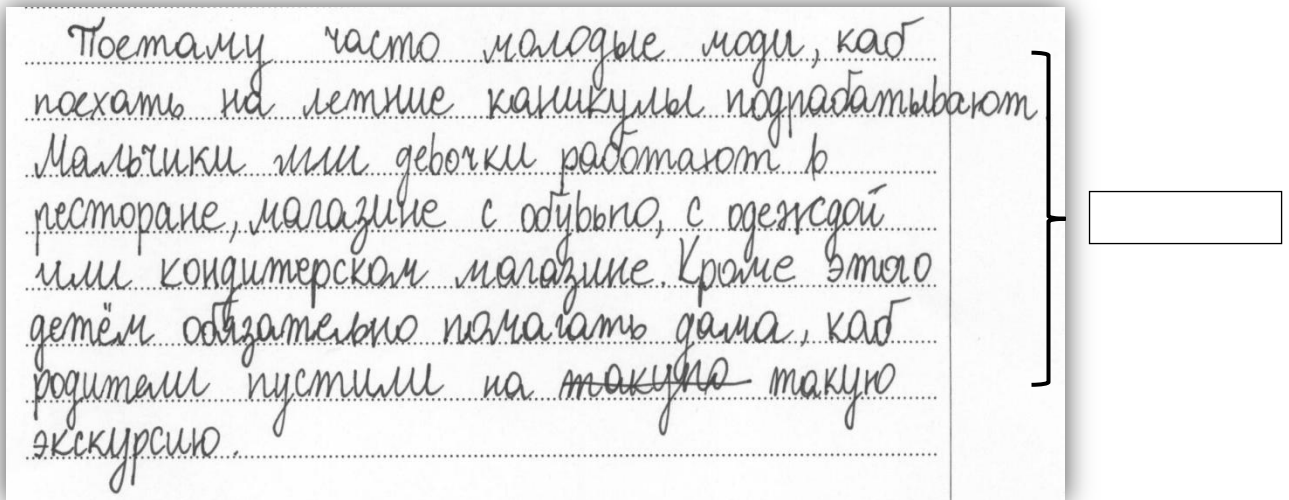 Поетаму часто молодые люди, каб
поехать на летние каникулы подрабатывают
Мальчики или девочки работают в
ресторане, магазине с обувьно, с одеждой
или кондитерском магазине. Кроме этого
детём обязательно помагать дама, каб
родители пустили на такупо такую
экскурсию.